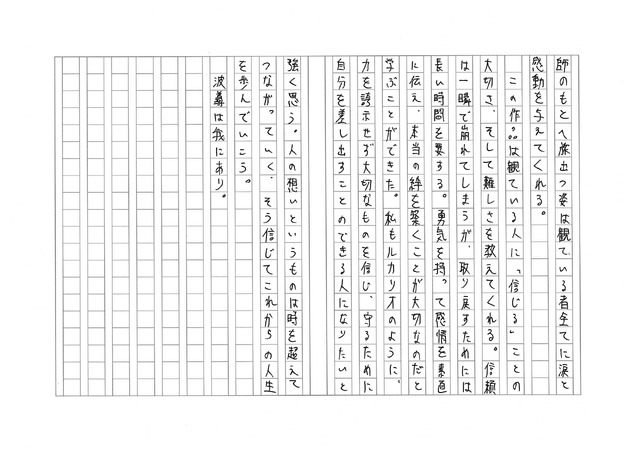 師のもとへ旅立つ姿は観ている者全てに涙と
感動を与えてくれる。
この作品は観ている人に「信じる」ことの
大切さ、そして難しさを教えてくれる。信頼
は一瞬で崩れてしまうが、取り戻すためには
長い時間を要する。勇気を持って感情を素直
に伝え、本当の絆を築くことが大切なのだと
学ぶことができた。私もルカリオのように、
力を誇示せず大切なものを信じ、守るために
自分を差し出すことのできる人になりたいと
強く思う。人の想いというものは時を超えて
つながっていく、そう信じてこれからの人生
を歩んでいこう。
波導は我にあり。